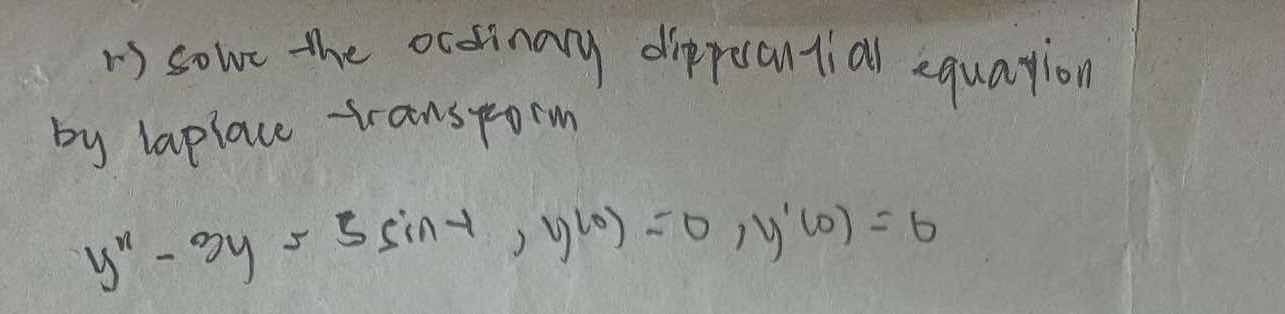 r) solve the ordinary differential equation
by laplace transform
y" - 2y = 5 sin t, y(0) = 0, y'(0) = 6